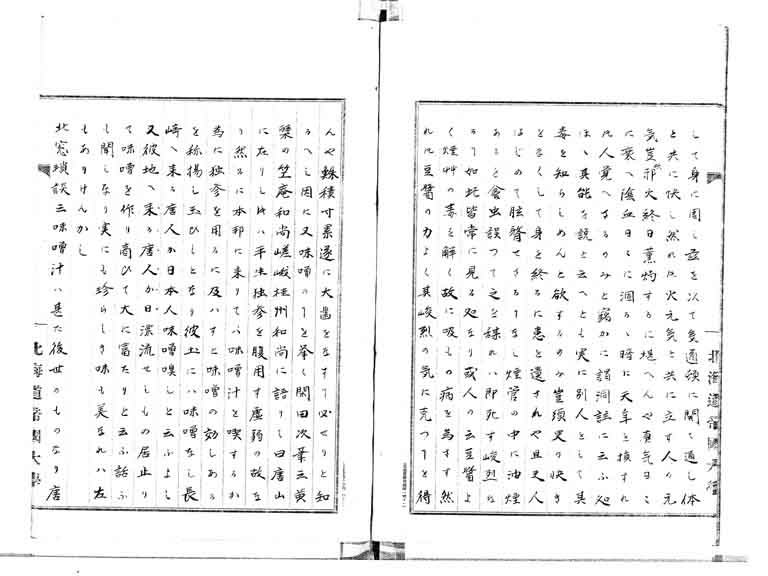 して身に周し茲を以て気道頓に開て通し体
と共に伏し然れは火元気と共に立す人の元
気豈邪火終日薫灼するに堪へんや真気日々
に衰へ陰血日々に涸る暗に天年と損すれ
は人覚へさるのみと窃かに謂洞詮に云ふ処
は其能を説と云へとも実に別人として其
毒を知らしめんと欲するのみ豈須臾の快き
をなくして身を終るに患と遺されや且夫人
はじめて眩瞀せさるもなし煙管の中に油煙
あると食虫誤つて之を緑れは即死す峻烈な
るり如此皆常に見る処なり或人の云豆醤よ
く煙艸の毒を解く故に吸もの病を為すす然
れは豆醤の力よく其峻烈の気に克つりを得
北海道帝国大学
んや銖積寸累遂に大菑をなすり必せりと知
るへし因に又味噌のりを挙く閑田次筆云黄
檗の竺庵和尚嵯峨桂州和尚に語りて曰唐山
に在りし時は平生独参を服用す虚弱の故な
り然るに本邦に来りては味噌汁と喫するか
為に独参を用るに及はすと味噌の効しある
を称揚し玉ひしとなり彼土には味噌なし長
崎へ来る唐人か日本人味噌嗅しと云ふよし
又彼地へ来る唐人か日漂流せしもの居止り
て味噌を作り商ひて大に富たりと云ふ話ふ
も聞しなり実にも珍らしき味も美なれは左
もありけんかし
北窓瑣談云味噌汁は甚た後世のものなり唐
北海道帝国大学